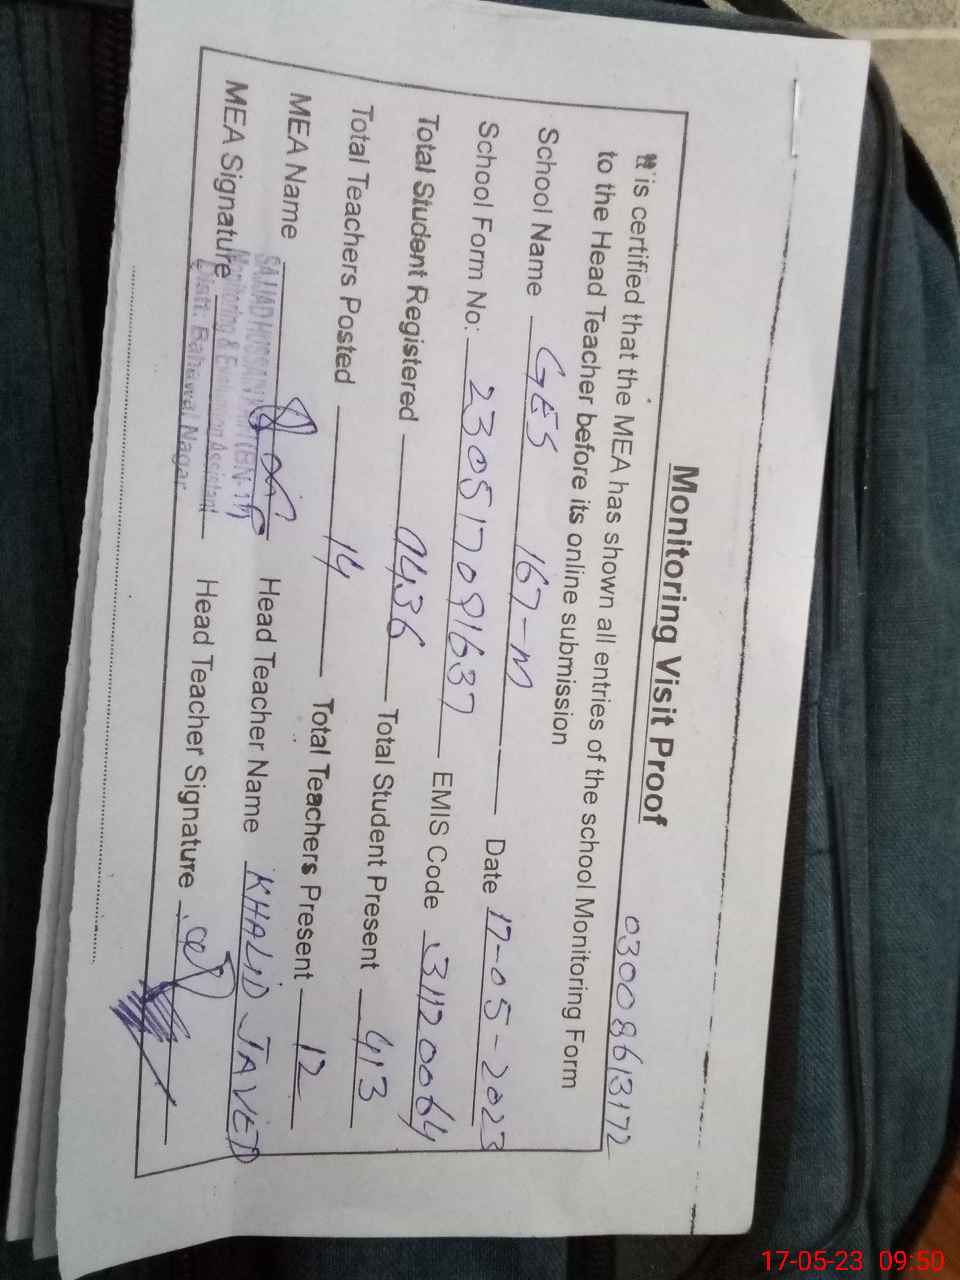 Monitoring Visit Proof
03008613172
It is certified that the MEA has shown all entries of the school Monitoring Form
to the Head Teacher before its online submission
School Name GES 167-M Date 17-05-2023
School Form No: 23051709 1637 EMIS Code 31120064
Total Student Registered 0436 Total Student Present 413
Total Teachers Posted 14 Total Teachers Present 12
MEA Name Head Teacher Name KHALID JAVED
SAJJAD HUSSAIN
MEA Signature Head Teacher Signature
Monitoring & Evaluation Assistant
Distt: Bahawal Nagar
17-05-23 09:50